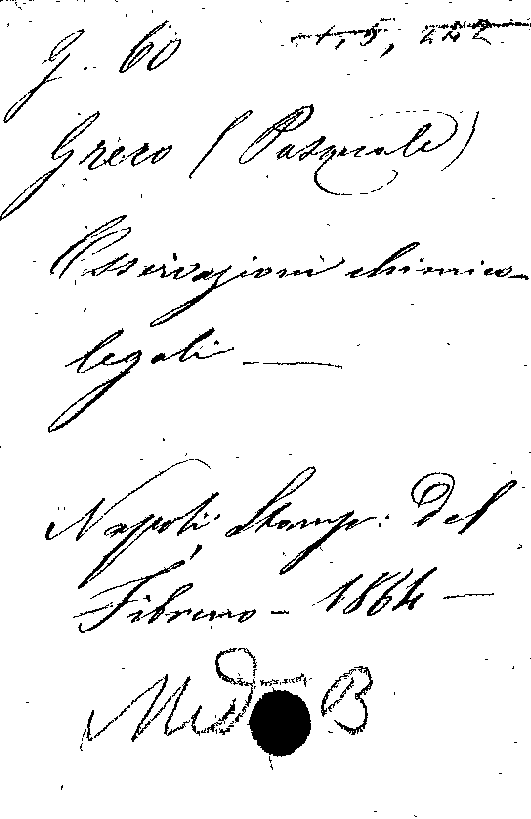 G. 60
1, 5, 242
Greco (Pasquale)
Osservazioni chimico-
legali —
Napoli; Stamp: del
Fibreno - 1864 —
Med B